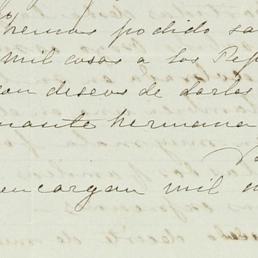 hemos podido sa
mil cosas a los Pep
on deseos de darlos
mante hermana
encargan mil